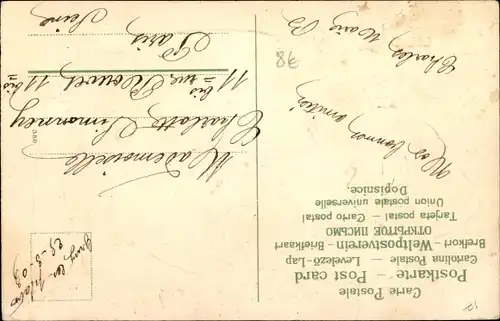 Carte Postale
Postkarte – Post card
Cartolina Postale – Levelező-Lap
Brefkort – Weltpostverein – Brefkaart
ОТКРЫТОЕ ПИСЬМО
Tarjeta postal – Carte postal
Union postale universelle
Dopisnice.
Mademoiselle
Charlotte Simonney
11 = bis rue Rouvet 11 bis =
Paris
Seine
Nos bonnes amitiés
Charles Marie B
380